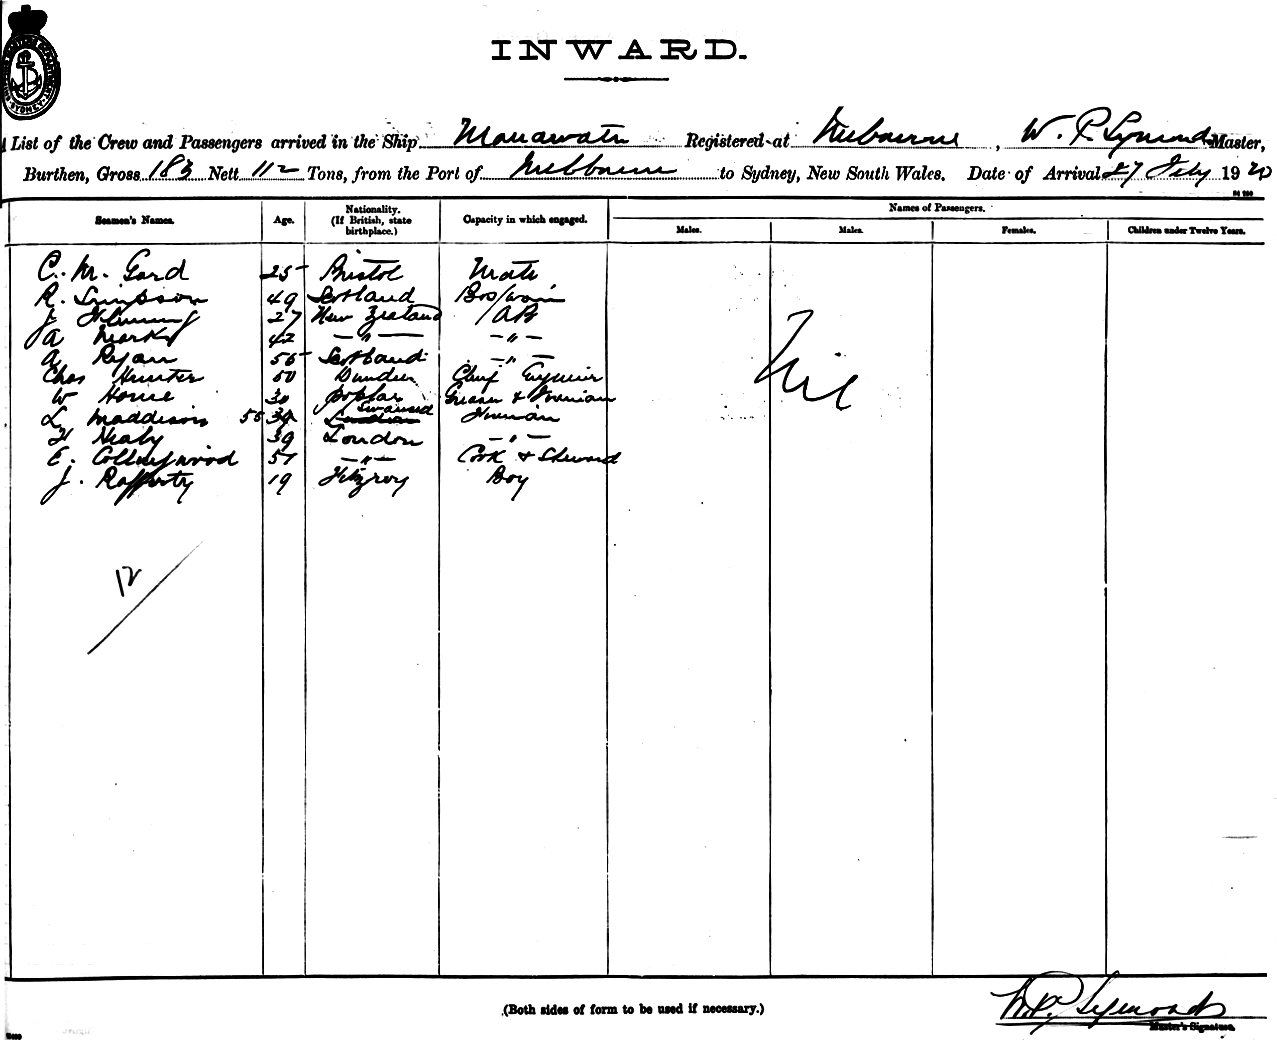 INWARD.
List of the Crew and Passengers arrived in the Ship Manawatu Registered at Melbourne, W. P. Symonds Master,
Burthen, Gross 183 Nett 112 Tons, from the Port of Melbourne to Sydney, New South Wales. Date of Arrival 27 Feby 1920
Seamen's Names. Age. Nationality. (If British, state birthplace.) Capacity in which engaged. Names of Passengers.
Males. Males. Females. Children under Twelve Years.
C. M. Gard 25 Bristol Mate
R. Simpson 49 Scotland Bos/wain
J. Fleming 27 New Zealand AB
A Marks 42 — " — — " —
A Ryan 56 Scotland — " —
Chas Hunter 50 Dundee Chief Engineer
W Horne 30 Poplar Greaser & Fireman
L. Maddison 56 Swansea Fireman
H Healy 39 London — " —
E. Collingwood 57 — " — Cook & Steward
J. Rafferty 19 Fitzroy Boy
Nil
12
(Both sides of form to be used if necessary.)
W. P. Symonds
Master's Signature.